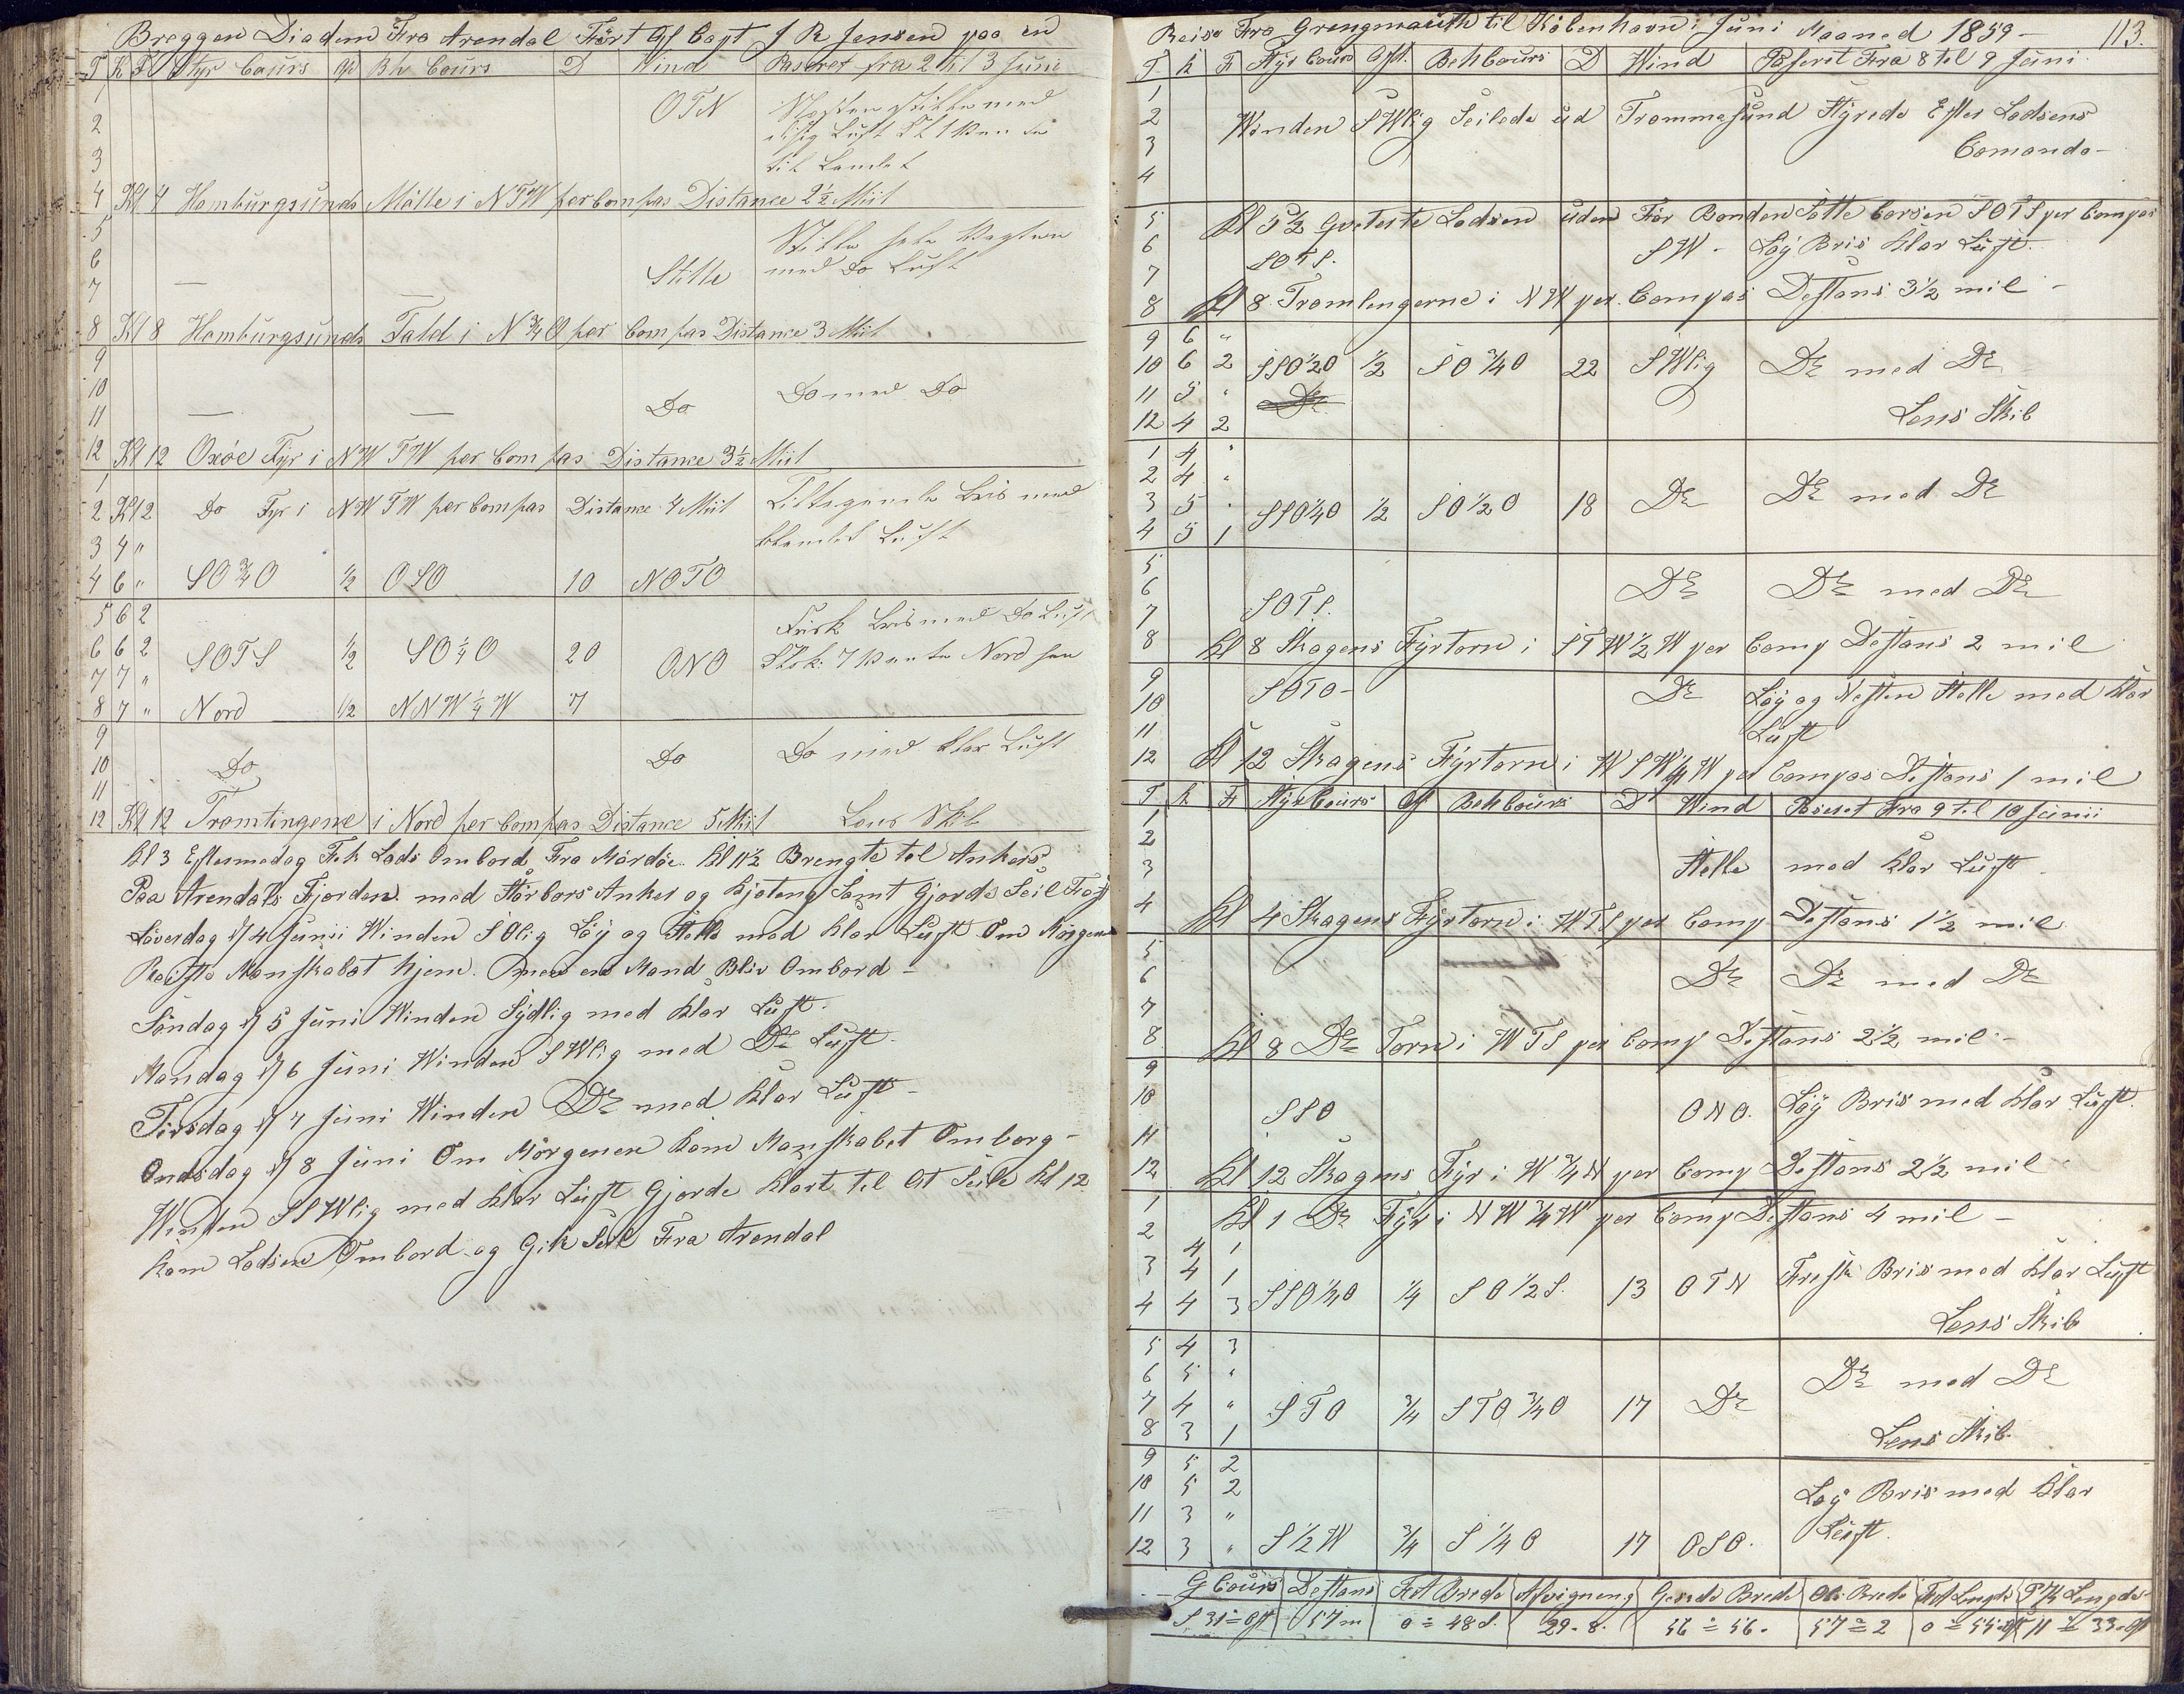 Breggen Diadem Fra Arendal Fört Af Capt J R Jensen paa en
T K F Styr Cours Af Bh Cours D Wind Passeret fra 2 til 3 Juni
1
2 OTN
3 til Landet
4 Kl 4 Hamburgsunds Mölle i NTW per Compas Distance 2½ Miil
5 Stille hele Vagten
6 Stille med Do Luft
7
8 Kl 8 Hamburgsunds Fald i N¾O per Compas Distance 3 Miil
9
10 Do Do med Do
11
12 Kl 12 Oxöe Fyr i NWTW per Compas Distance 3½ Miil
1
2 Kl 2 Do Fyr i NWTW per Compas Distance 4 Miil Bris med
3 4 " Luft
4 6 " SO¾O ½ OSO 10 NOTO
5 6 2 Frisk Bris med Do Luft
6 6 2 SOTS ½ SO¼O 20 ONO Nord
7 7 "
8 7 " Nord ½ NNW¼W 7
9
10 Do Do Do med klar Luft
11
12 Kl 12 Tromlingene i Nord per Compas Distance 5 Miil Lens Skib
Kl 3 Eftermedag Fik Lods Ombord Fra Mærdöe. Kl 11½ Brengte til Ankers
Paa Arendals Fjorden. med Störbors Anker og Kjeteng Samt Gjorde Seil Fast
Löverdag d 4 Junii Winden SOlig Löy og Stelle med klar Luft Om Morgenen
Reiste Manskabet hjem. men en Mand Bliv Ombord -
Söndag d 5 Juni Winden Sydlig med klar Luft.
Mandag d 6 Juni Winden SWlig med Do Luft -
Tirsdag d 7 Juni Winden Do med klar Luft -
Onsdag d 8 Juni Om Morgenen kom Manskabet Omborg -
Winden SSWlig med klar Luft Gjorde klart til At Seile Kl 12
kom Lodsen Ombord og Gik Seil Fra Arendal
Reise Fra Grengmauth til Kobenhavn i Juni Maaned 1859 - 113.
T K F Styr Cours Aft. Beh Cours D Wind Paserit Fra 8 til 9 Juni
1
2 Winden SWlig Seilede ud Trommesund Styrede Efter Lodsens
3 Comando -
4
5 Kl 5½ Qveterte Lodsen uden For Bonden Satte Corsen SOTS per Compas
6 SOTS. SW. Löy Bris klar Luft.
7
8 Kl 8 Tromlengerne i NW per Compas Destans 3½ mil -
9 6 "
10 6 2 SSO½O ½ SO¾O 22 SWlig Do med Do
11 5 "
12 4 2 Lens Skib
1 4 "
2 4 "
3 5 " SSO¼O ½ SO½O 18 Do Do med Do
4 5 1
5
6 Do Do med Do
7 SOTS.
8 Kl 8 Skagens Fyrtorn i STW½W per Comp Destans 2 mil
9 SOTO - Do Löy og Nesten Stelle med klar
10 Luft
11
12 Kl 12 Skagens Fyrtorn i WSW¼W per Compas Destans 1 mil
T K F Styr Cours Af Beh Cours D Wind Paseret Fra 9 til 10 Junii
1
2
3 Stelle med klar Luft.
4 Kl 4 Skagens Fyrtorn i WTS per Comp Destans 1½ mil
5
6 Do Do med Do
7
8 Kl 8 Do Torn i WTS per Comp Destans 2½ mil -
9
10 SSO ONO. Löy Bris med klar Luft.
11
12 Kl 12 Skagens Fyr i W¾N per Comp Destans 2½ mil
1 Kl 1 Do Fyr i NW¾W per Comp Destans 4 mil -
2 4 1
3 4 1 Fresk Bris med klar Luft
4 4 3 SSO¼O ¼ SO½S. 13 OTN
Lens Skib
5 4 3
6 5 " Do med Do
7 4 " STO ¾ STO¾O 17 Do
8 3 1 Lens Skib.
9 5 2
10 5 2 Löy Bris med klar
11 3 " Luft.
12 3 " S½W ¾ S¼O 17 OSO.
G Cours Destans Brede Afvigneng Brede Brede
S 31° Ost 57 m 0° 48 S. 29.8. 56° 56. 57° 2